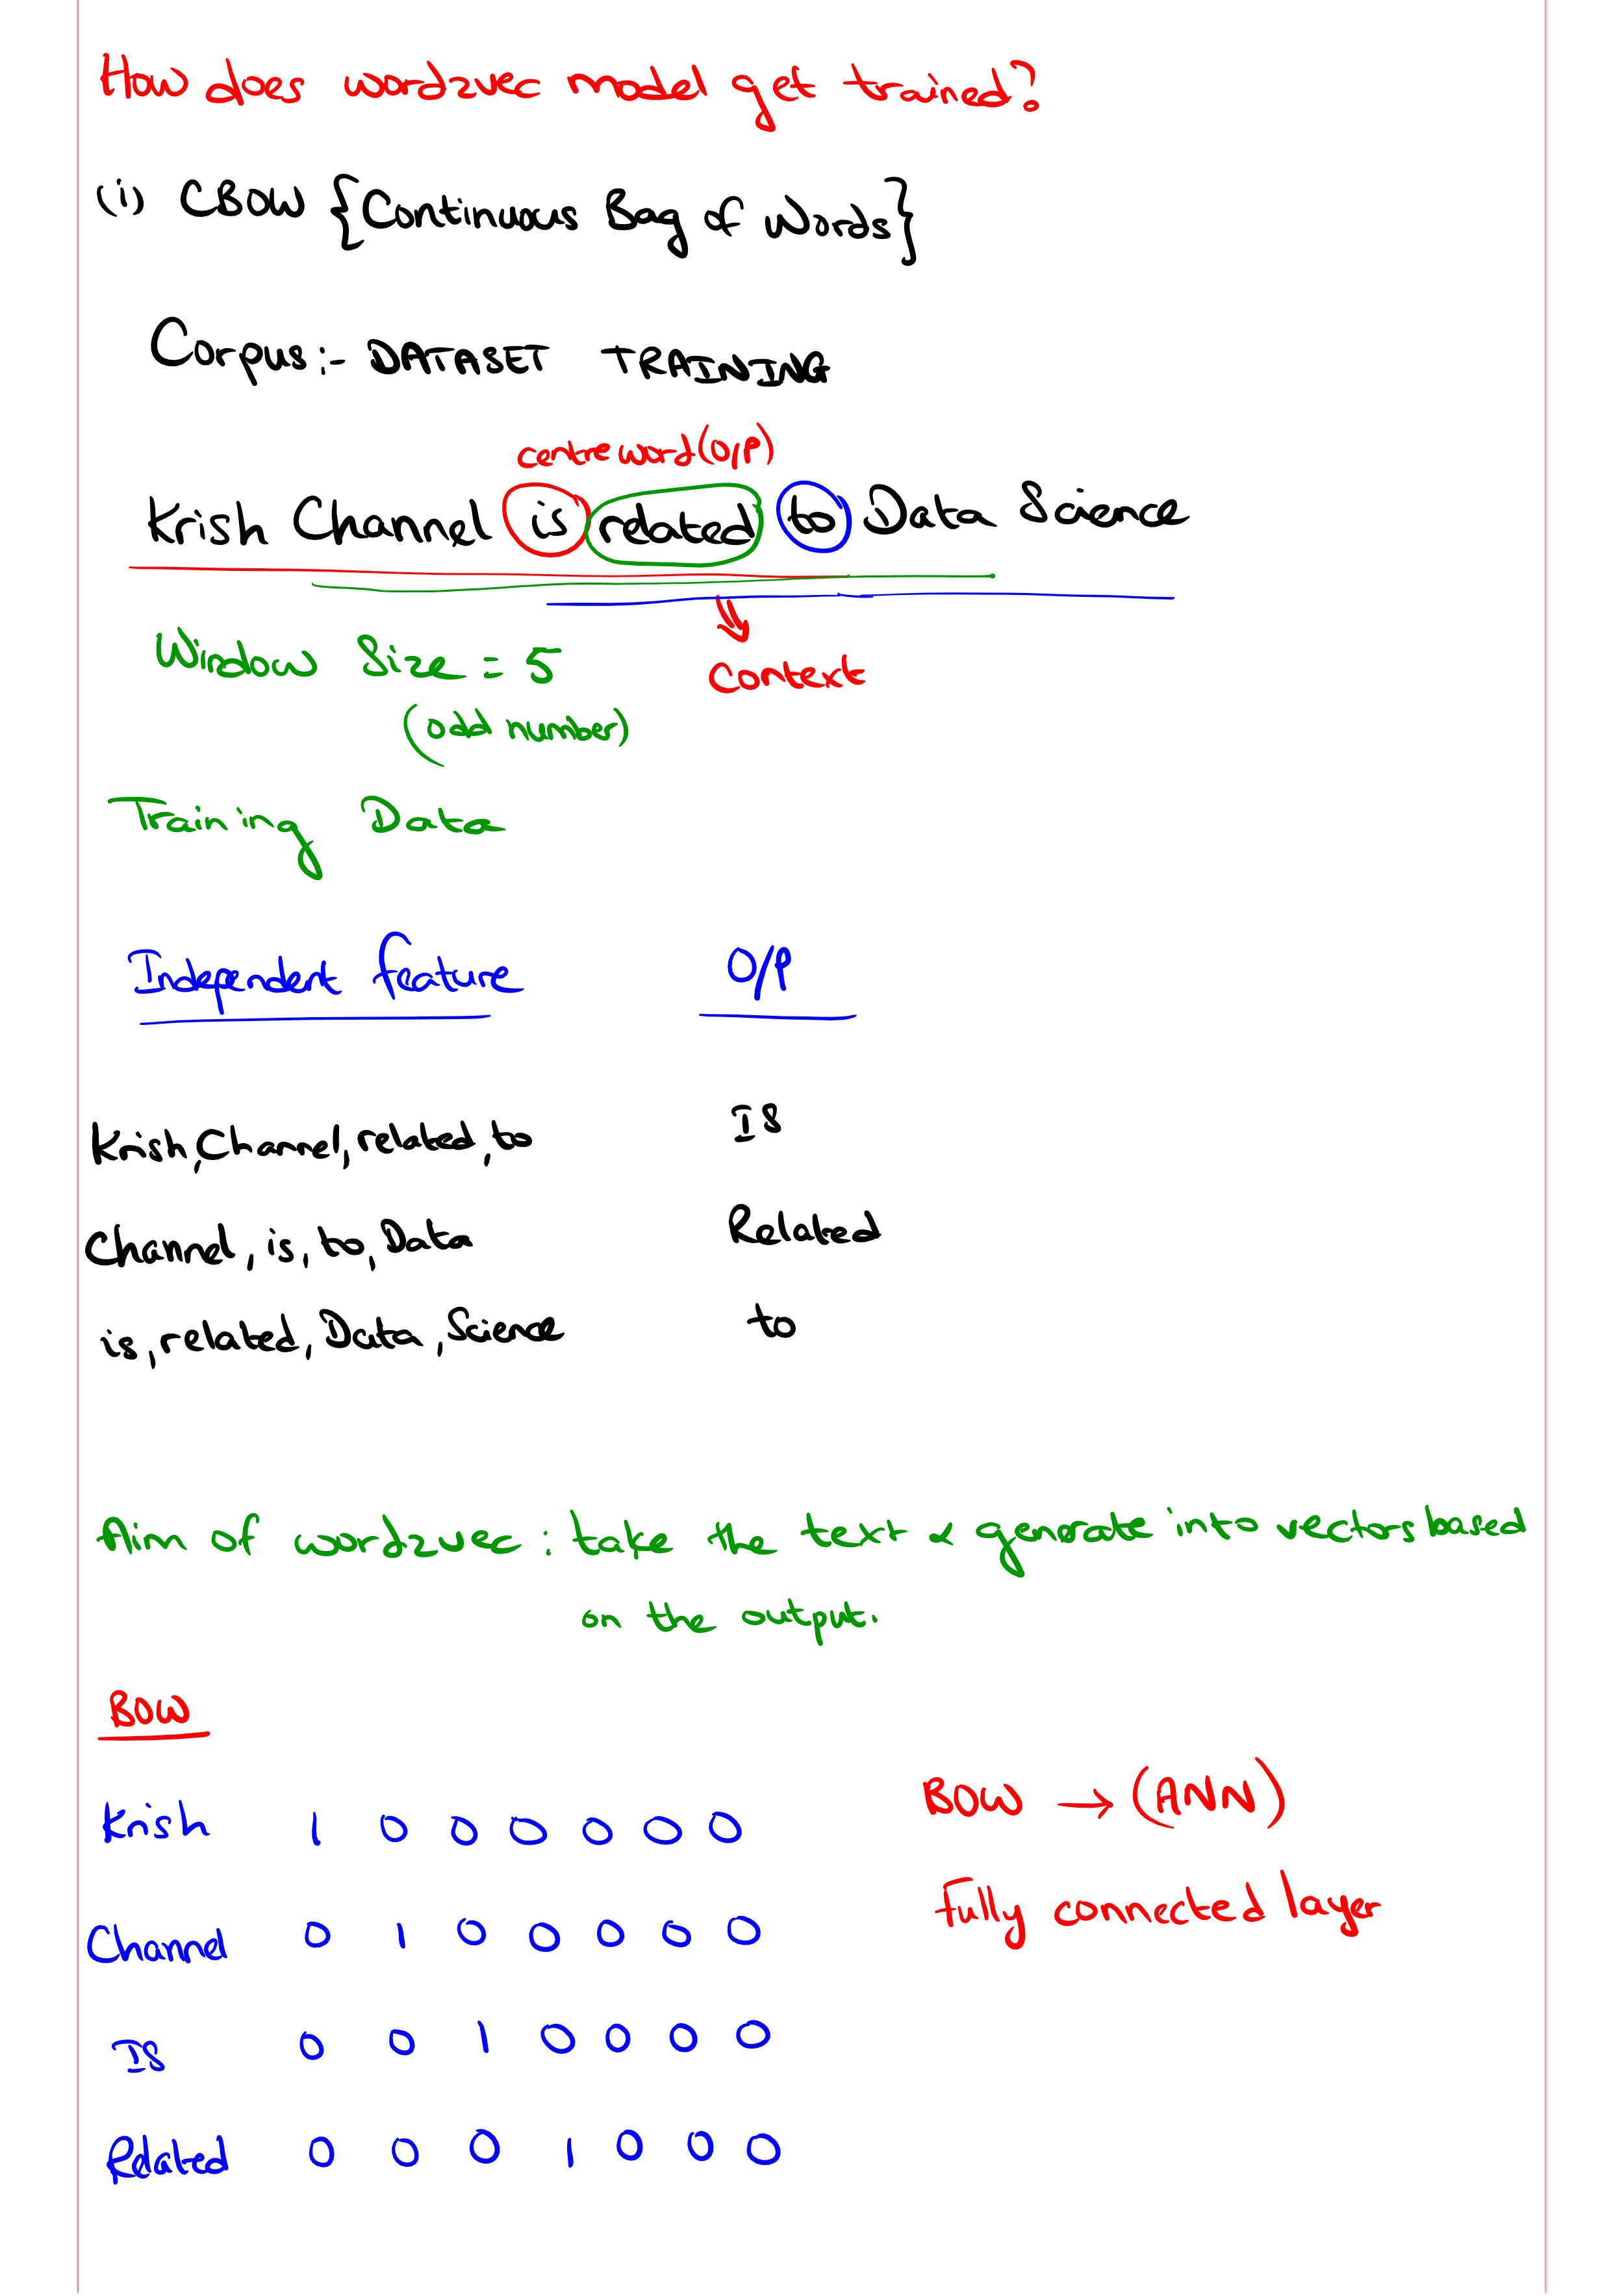 How does word2vec model get trained?
(i) CBOW {Continuous Bag of Words}
Corpus:- DATASET TRAINING
centre word (O/P)
Krish Channel is related to Data Science
Window Size = 5
Context
(odd number)
Training Data
Independent feature O/P
Krish, Channel, related, to IS
Channel, is, to, Data Related
is, related, Data, Science to
Aim of word2vec : take the text & generate into vectors based
on the output.
BOW
BOW → (ANN)
Krish 1 0 0 0 0 0 0
fully connected layer
Channel 0 1 0 0 0 0 0
IS 0 0 1 0 0 0 0
Related 0 0 0 1 0 0 0